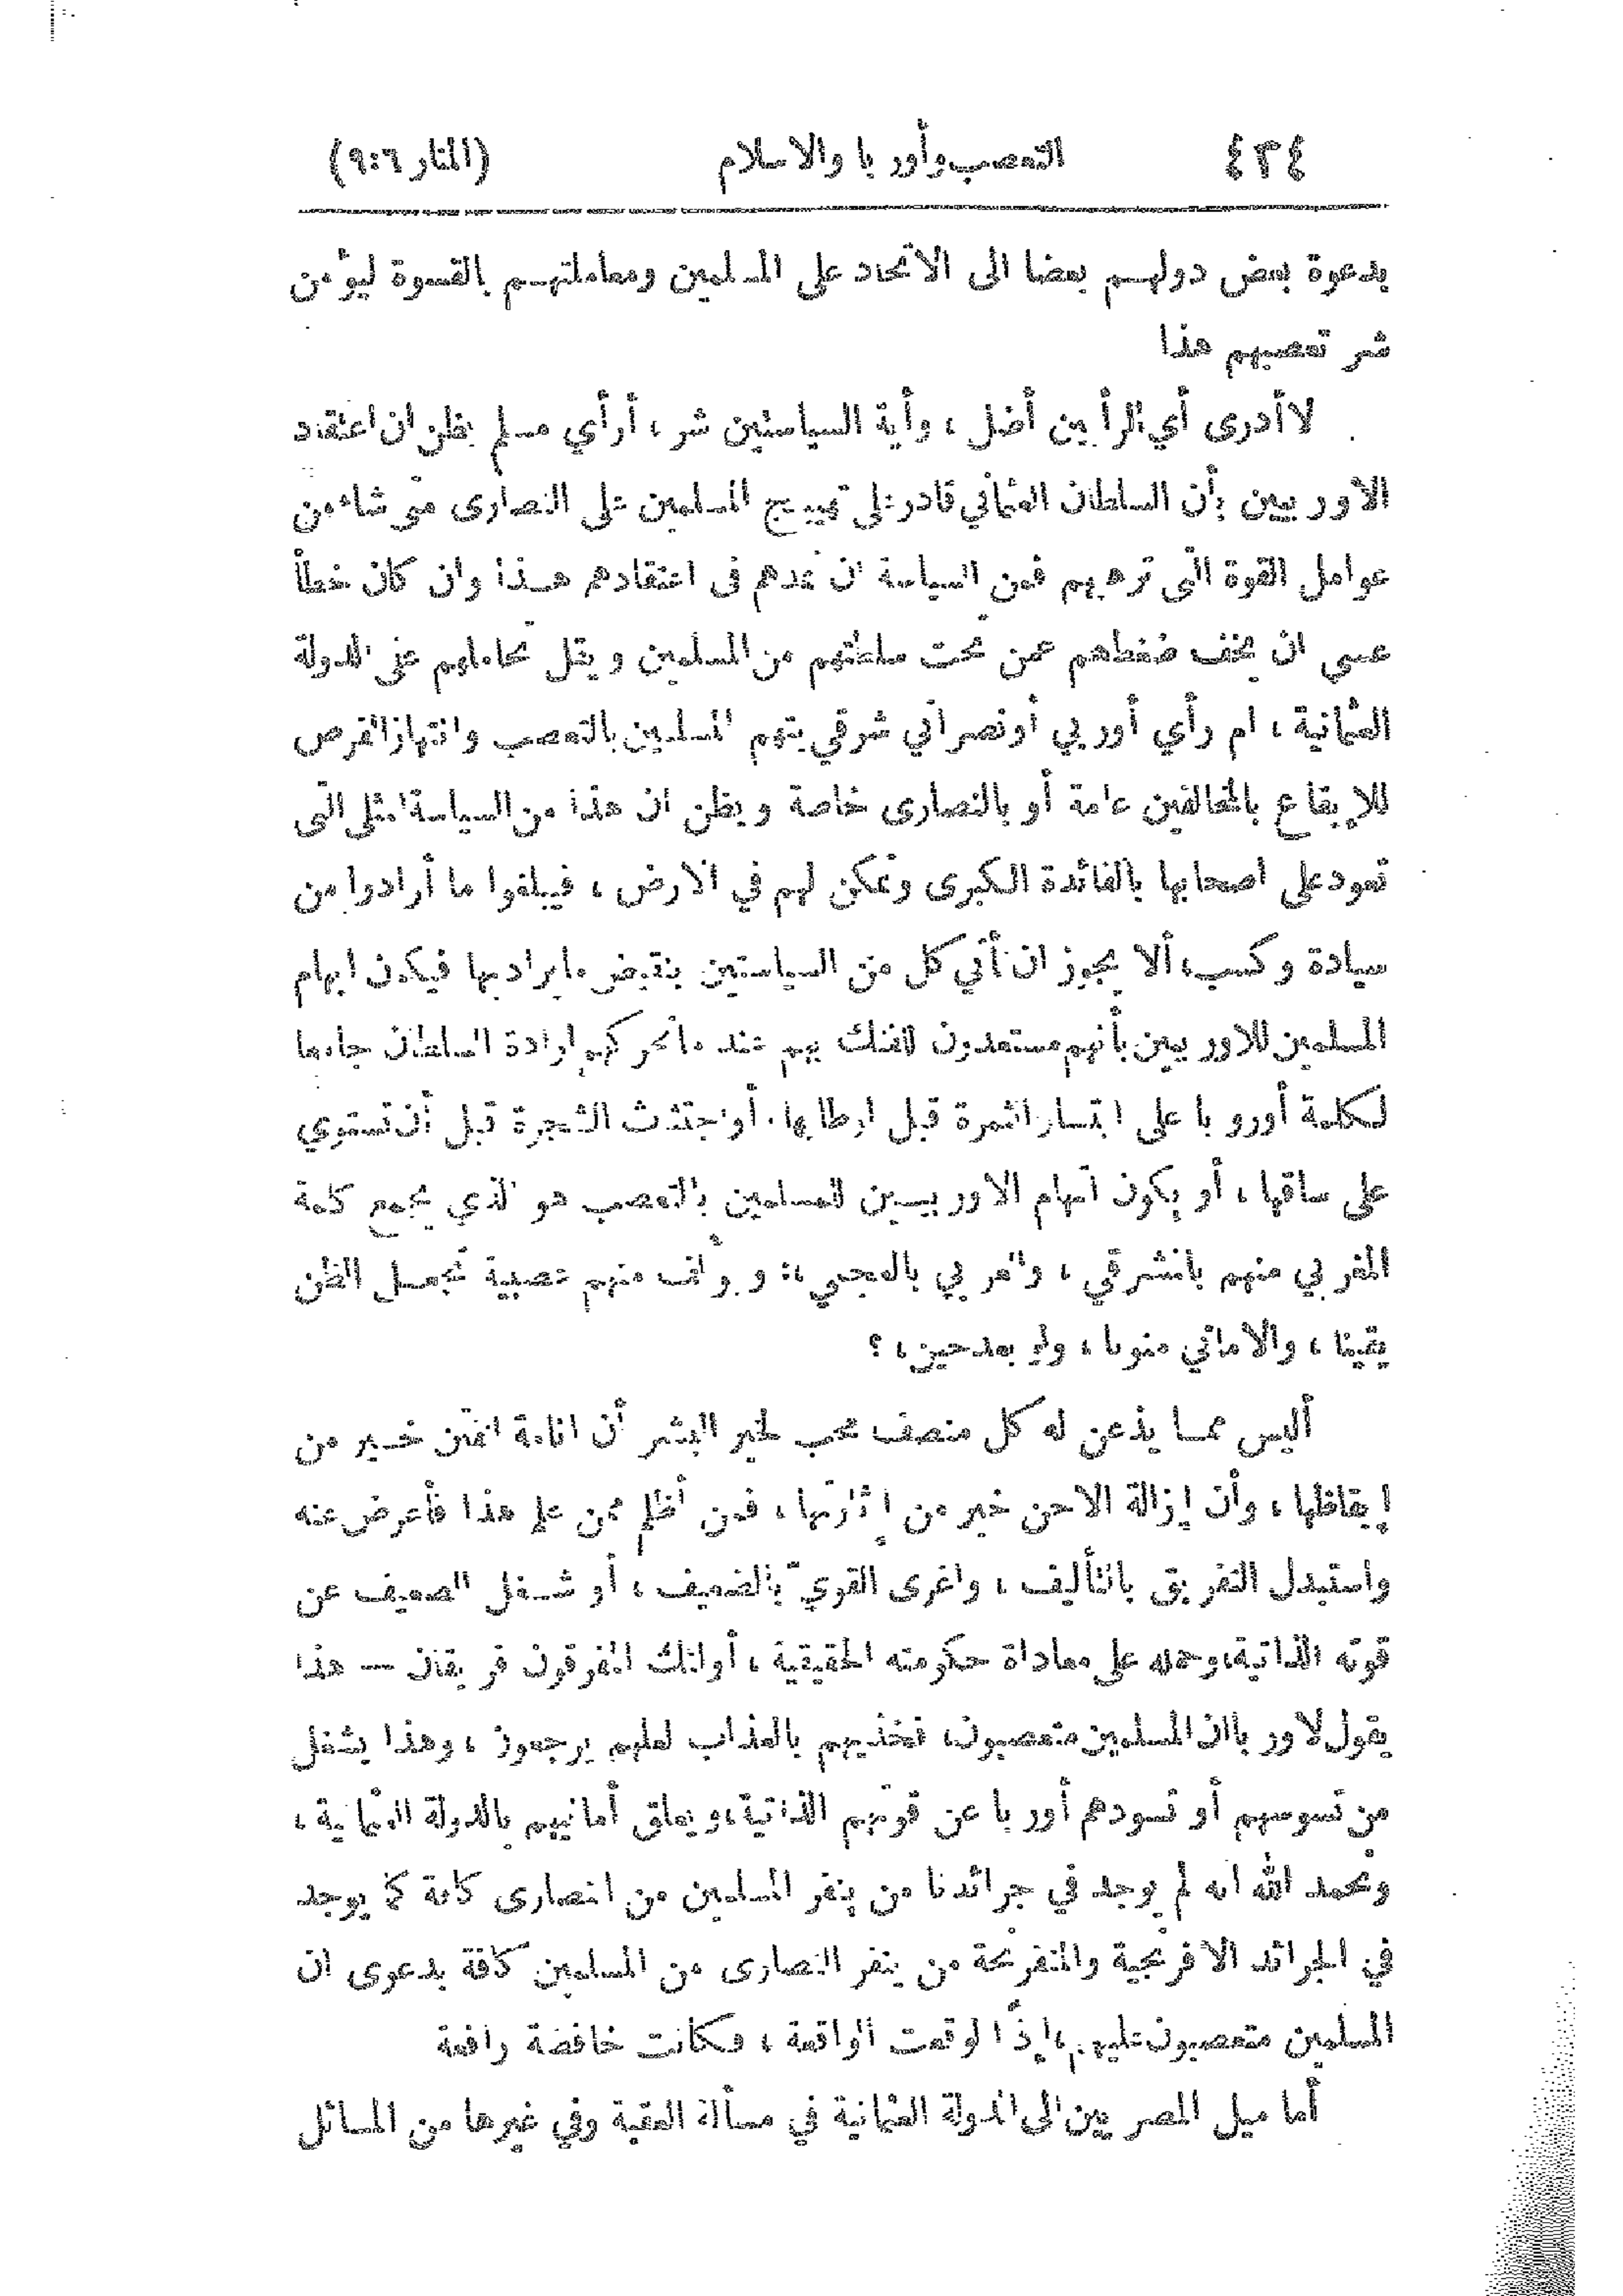 ٤٣٤ التعصب وأوربا والاسلام (المنار ٦:٩)
بدعوة بعض دولهم بعضا الى الاتحاد على المسلمين ومعاملتهم بالقسوة ليؤمن
شر تعصبهم هذا
لا أدرى أي الرأيين أضل ، وأية السياستين شر ، أرأي مسلم يظن ان اعتقاد
الاوربيين بأن السلطان العثماني قادر على تهييج المسلمين على النصارى متى شاء من
عوامل القوة التى ترهبهم فمن السياسة ان نمدهم فى اعتقادهم هذا وان كان خطأ
عسى ان يخف ضغطهم عمن تحت سلطتهم من المسلمين ويقل تحاملهم على الدولة
العثمانية ، ام رأي أوربي أو نصراني شرقي يتهم المسلمين بالتعصب وانتهاز الفرص
للإيقاع بالمخالفين عامة أو بالنصارى خاصة ويظن ان هذا من السياسة المثلى التى
تعود على اصحابها بالفائدة الكبرى وتمكن لهم في الارض ، فيبلغوا ما أرادوا من
سيادة وكسب، ألا يجوز ان تأتي كل من السياستين بنقيض ما يراد بها فيكون ايهام
المسلمين للاوربيين بأنهم مستعدون للفتك بهم عند ما تحركهم ارادة السلطان جامعا
لكلمة أوروبا على ابتسار الثمرة قبل ارطابها، أو اجتثاث الشجرة قبل أن تستوي
على ساقها ، أو يكون اتهام الاوربيين للمسلمين بالتعصب هو الذي يجمع كلمة
المغربي منهم بالمشرقي ، والعربي بالعجمي ، ويؤلف منهم عصبية تجعل الظن
يقينا ، والاماني منونا ، ولو بعد حين ، ؟
أليس مما يذعن له كل منصف محب لخير البشر أن انامة الفتن خير من
إيقاظها ، وأن إزالة الاحن خير من إثارتها ، فمن أظلم ممن علم هذا فأعرض عنه
واستبدل التفريق بالتأليف ، واغرى القويّ بالضعيف ، أو شغل الضعيف عن
قوته الذاتية، وحمله على معاداة حكومته الحقيقية ، أولئك المفرقون فريقان — هذا
يقول لاوربا ان المسلمين متعصبون، فخذيهم بالعذاب لعلهم يرجعون ، وهذا يشغل
من تسوسهم أو تسودهم أوربا عن قوتهم الذاتية، ويعلق أمانيهم بالدولة العثمانية ،
ونحمد الله انه لم يوجد في جرائدنا من ينفر المسلمين من النصارى كافة كما يوجد
في الجرائد الافرنجية والمتفرنجة من ينفر النصارى من المسلمين كافة بدعوى ان
المسلمين متعصبون عليهم ، إذًا لوقعت الواقعة ، فكانت خافضة رافعة
أما ميل المصريين الى الدولة العثمانية في مسألة العقبة وفي غيرها من المسائل